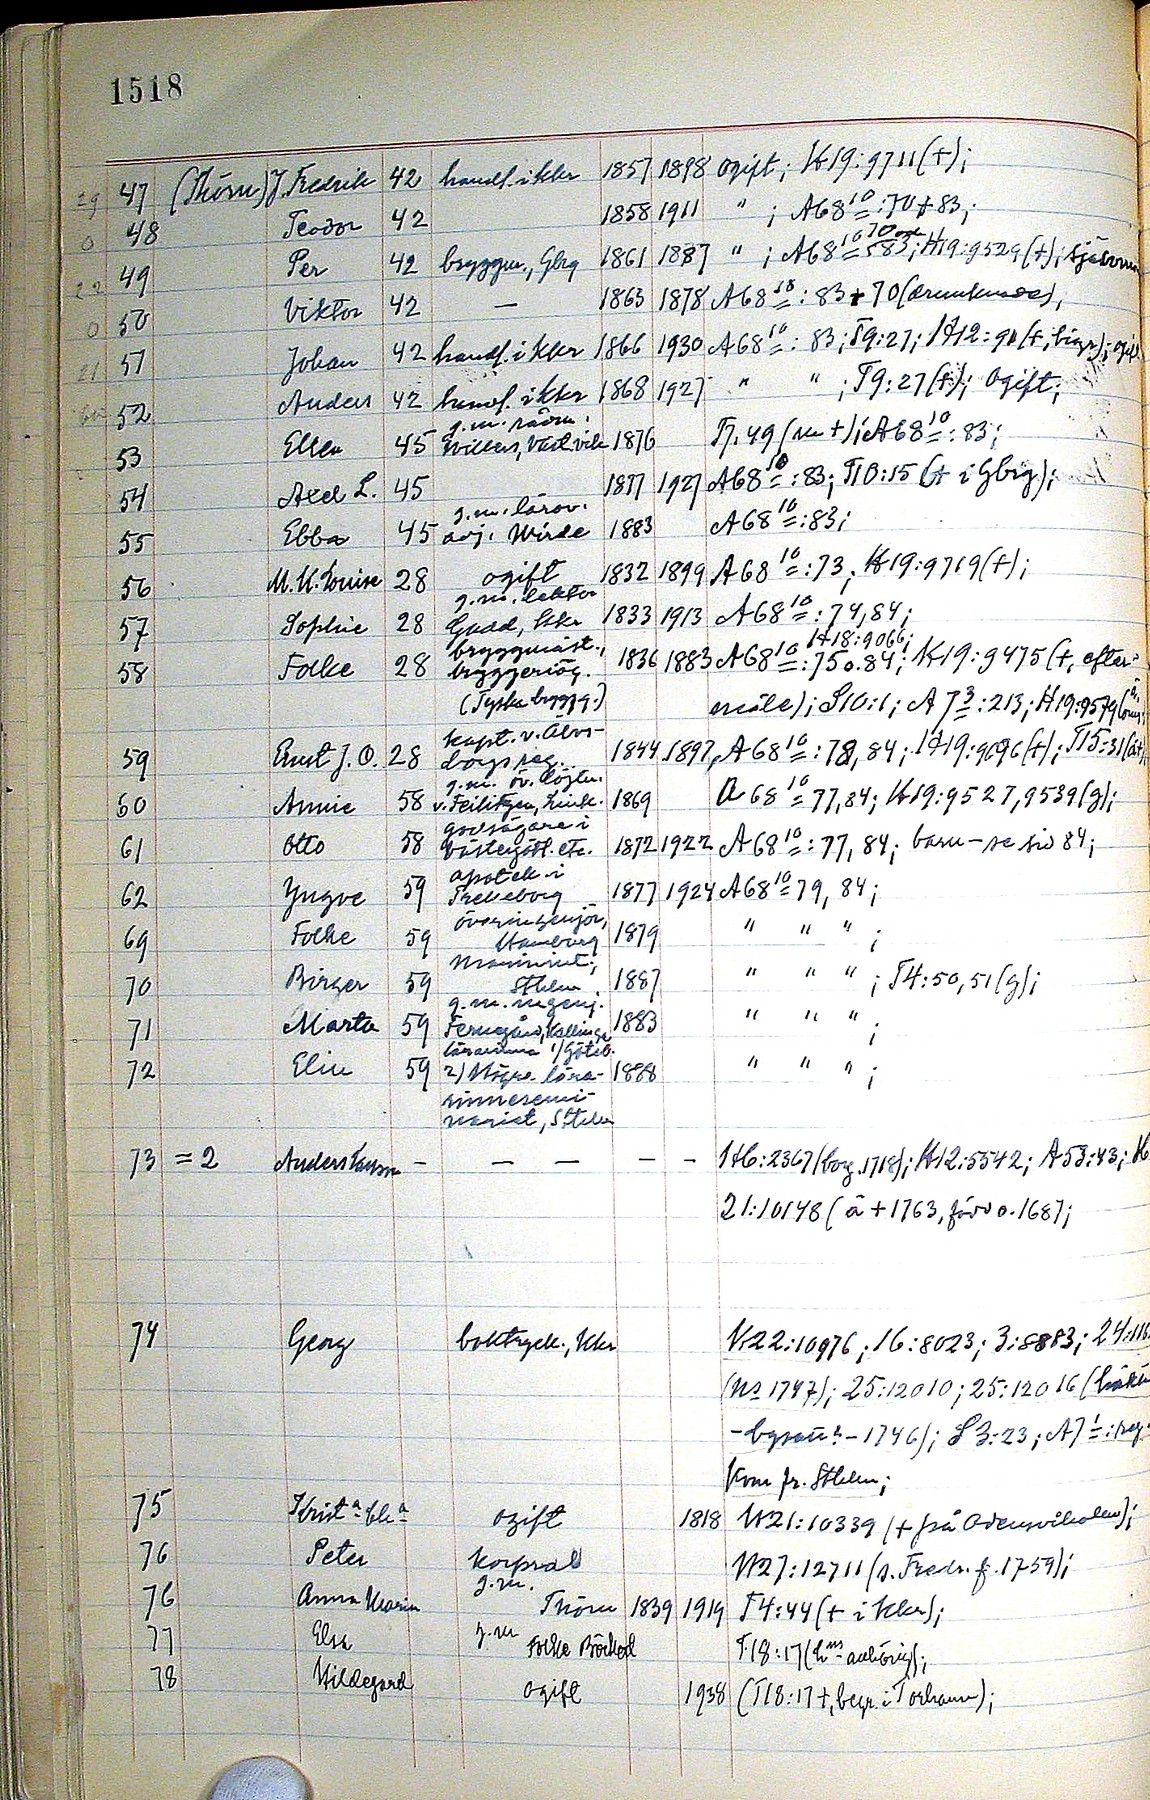 1518
29 47 (Thörn) J. Fredrik 42 handl. i Kkr 1857 1898 ogift; H19:9711(+);
0 48 Teodor 42 1858 1911 " ; A68 10:70+83;
22 49 Per 42 bryggm., Gbg 1861 1887 " ; A68 10 583; H19:9529(+);
0 50 Viktor 42 — 1863 1878 A68 10: 83+70
21 51 Johan 42 handl. i Kkr 1866 1930 A68 10: 83; T9:27; H12:
52 Anders 42 handl. i Kkr 1868 1927 " " ; T9:27(+); Ogift;
g. m. rådm.
53 Ellen 45 Willers, Västervik 1876 T7:49 (m +); A68 10:83;
54 Axel L. 45 1877 1927 A68 10:83; T10:15 (+ i Gbg);
g. m. lärov.
55 Ebba 45 adj. Wirde 1883 A68 10:83;
56 M. K. Louise 28 ogift 1832 1899 A68 10:73; H19:9719(+);
g. m. lektor
57 Sophie 28 Kkr 1833 1913 A68 10:74,84;
bryggmäst., H18:9066;
58 Folke 28 bryggeriäg. 1836 1883 A68 10:75 o. 84; H19:9475 (+, efter-
(Tyska brygg.) mäle); S10:1; A 7 3:213; H19:9579
kapt. v. Älvs-
59 Ernst J. O. 28 borgs reg. 1844 1897 A68 10:78, 84; H19:9696(+); T15:31
g. m. öv. löjtn.
60 Annie 58 v. Feilitzen, 1869 A 68 10 77,84; H19:9527,9539(g);
godsägare i
61 Otto 58 Västergötl. etc. 1872 1922 A68 10: 77, 84; barn - se sid 84;
apotek. i
62 Yngve 59 Trelleborg 1877 1924 A68 10 79, 84;
överingenjör,
69 Folke 59 Hamburg 1879 " " " ;
70 Birger 59 Sthlm 1887 " " " ; T4:50,51(g);
g. m. ingenj.
71 Marta 59 1883 " " " ;
lärarinna 1) Göteb.
72 Elin 59 2) Högre lära- 1888 " " " ;
rinnesemi-
nariet, Sthlm
73 = 2 Anders Larsson — — — — — H6:2367 (borg. 1718); H12:5542; A53:43; H
21:10148 ( ä + 1763, född o. 1687;
74 Georg boktryck., Kkr H22:10976; 16:8023; 3:8883; 24:116
(No 1747); 25:12010; 25:12016
- 1746); S 3:23; A7 1:
Kom fr. Sthlm;
75 Krist a ogift 1818 H21:10339 (+ på Odensviholm);
76 Peter korpral H27:12711 (s. Fredr. f. 1759);
76 Anna Maria g. m. Thörn 1839 1919 T4:44 (+ i Kkr);
77 Elsa g. m Folke T18:17 ( anhörig);
78 Hildegard ogift 1938 (T18:17 +, begr. i Torhamn);